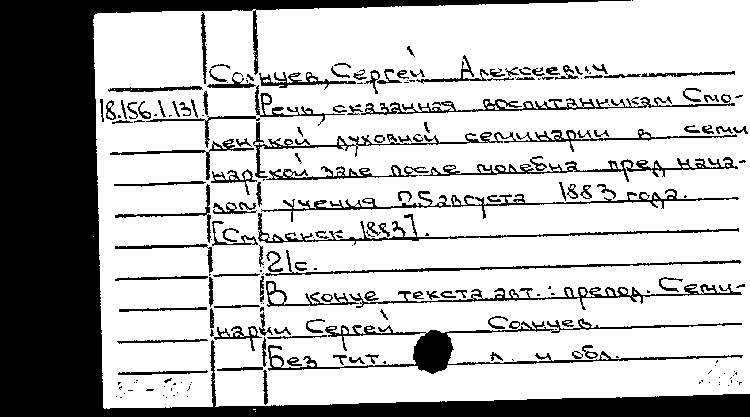 Солнцев, Сергей Алексеевич
18.156.1.131 Речь, сказанная воспитанникам Смо-
ленской духовной семинарии в семи
нарской зале после молебна пред нача-
лом учения 25 августа 1883 года.
[Смоленск, 1883].
21с.
В конце текста авт.: препод. Семи-
нарии Сергей Солнцев.
Без тит. л. и обл.